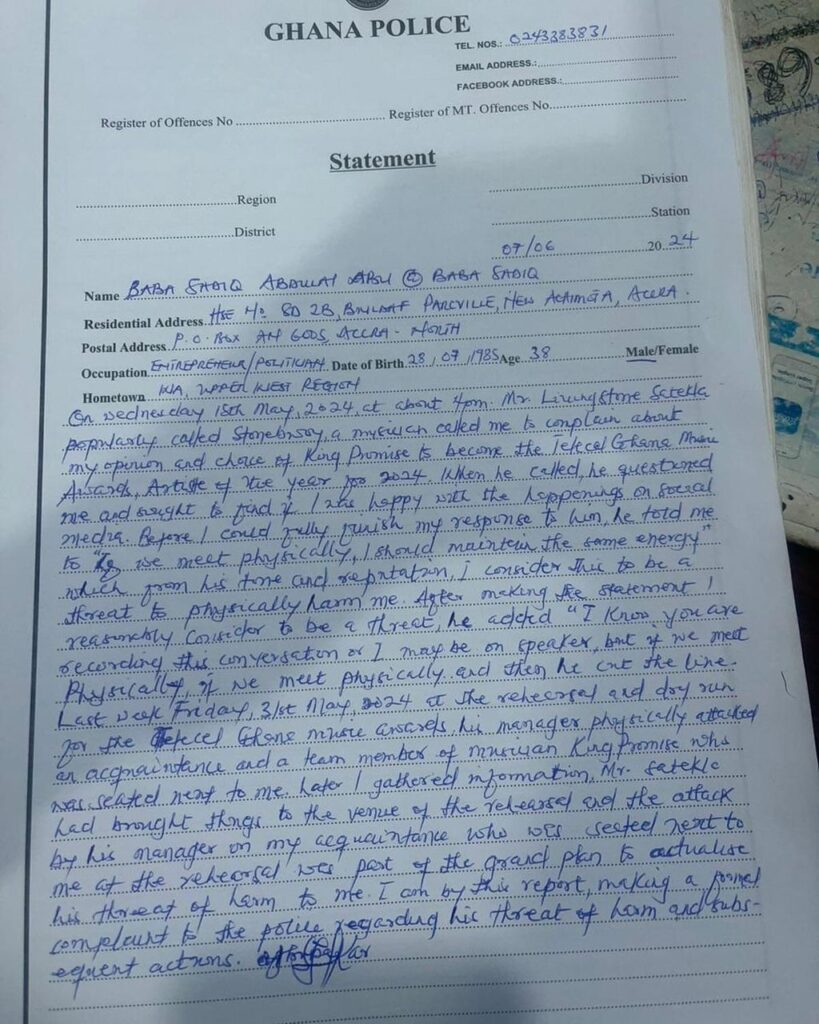 GHANA POLICE
TEL. NOS.: 0243383831
EMAIL ADDRESS:
FACEBOOK ADDRESS:
Register of Offences No Register of MT. Offences No
Statement
Region Division
District Station
07/06 2024
Name BABA SADIQ ABDULAI ABU @ BABA SADIQ
Residential Address HSE No. SD 2B, PARCVILLE, NEW ACHIMOTA, ACCRA.
Postal Address P.O. BOX AN 6005, ACCRA-NORTH
Occupation ENTREPRENEUR/POLITICIAN Date of Birth 28/07/1985 Age 38 Male/Female
Hometown WA, UPPER WEST REGION
On Wednesday 15th May, 2024, at about 4pm. Mr. Livingstone Satekla
popularly called Stonebwoy, a musician called me to complain about
my opinion and choice of King Promise to become the Telecel Ghana Music
Awards, Artiste of the year for 2024. When he called, he questioned
me and sought to find if I was happy with the happenings on social
media. Before I could fully finish my response to him, he told me
to "If we meet physically, I should maintain the same energy"
which from his tone and reputation, I consider this to be a
threat to physically harm me. After making the statement I
reasonably consider to be a threat, he added "I know you are
recording this conversation or I may be on speaker, but if we meet
physically, if we meet physically and then he cut the line.
Last week Friday, 31st May, 2024 at the rehearsal and dry run
for the Telecel Ghana music awards, his manager physically attacked
an acquaintance and a team member of musician King Promise who
was seated next to me. Later I gathered information, Mr. Satekle
had brought thugs to the venue of the rehearsal and the attack
by his manager on my acquaintance who was seated next to
me at the rehearsal was part of the grand plan to actualise
his threat of harm to me. I am by this report, making a formal
complaint to the police regarding his threat of harm and subs-
equent actions.